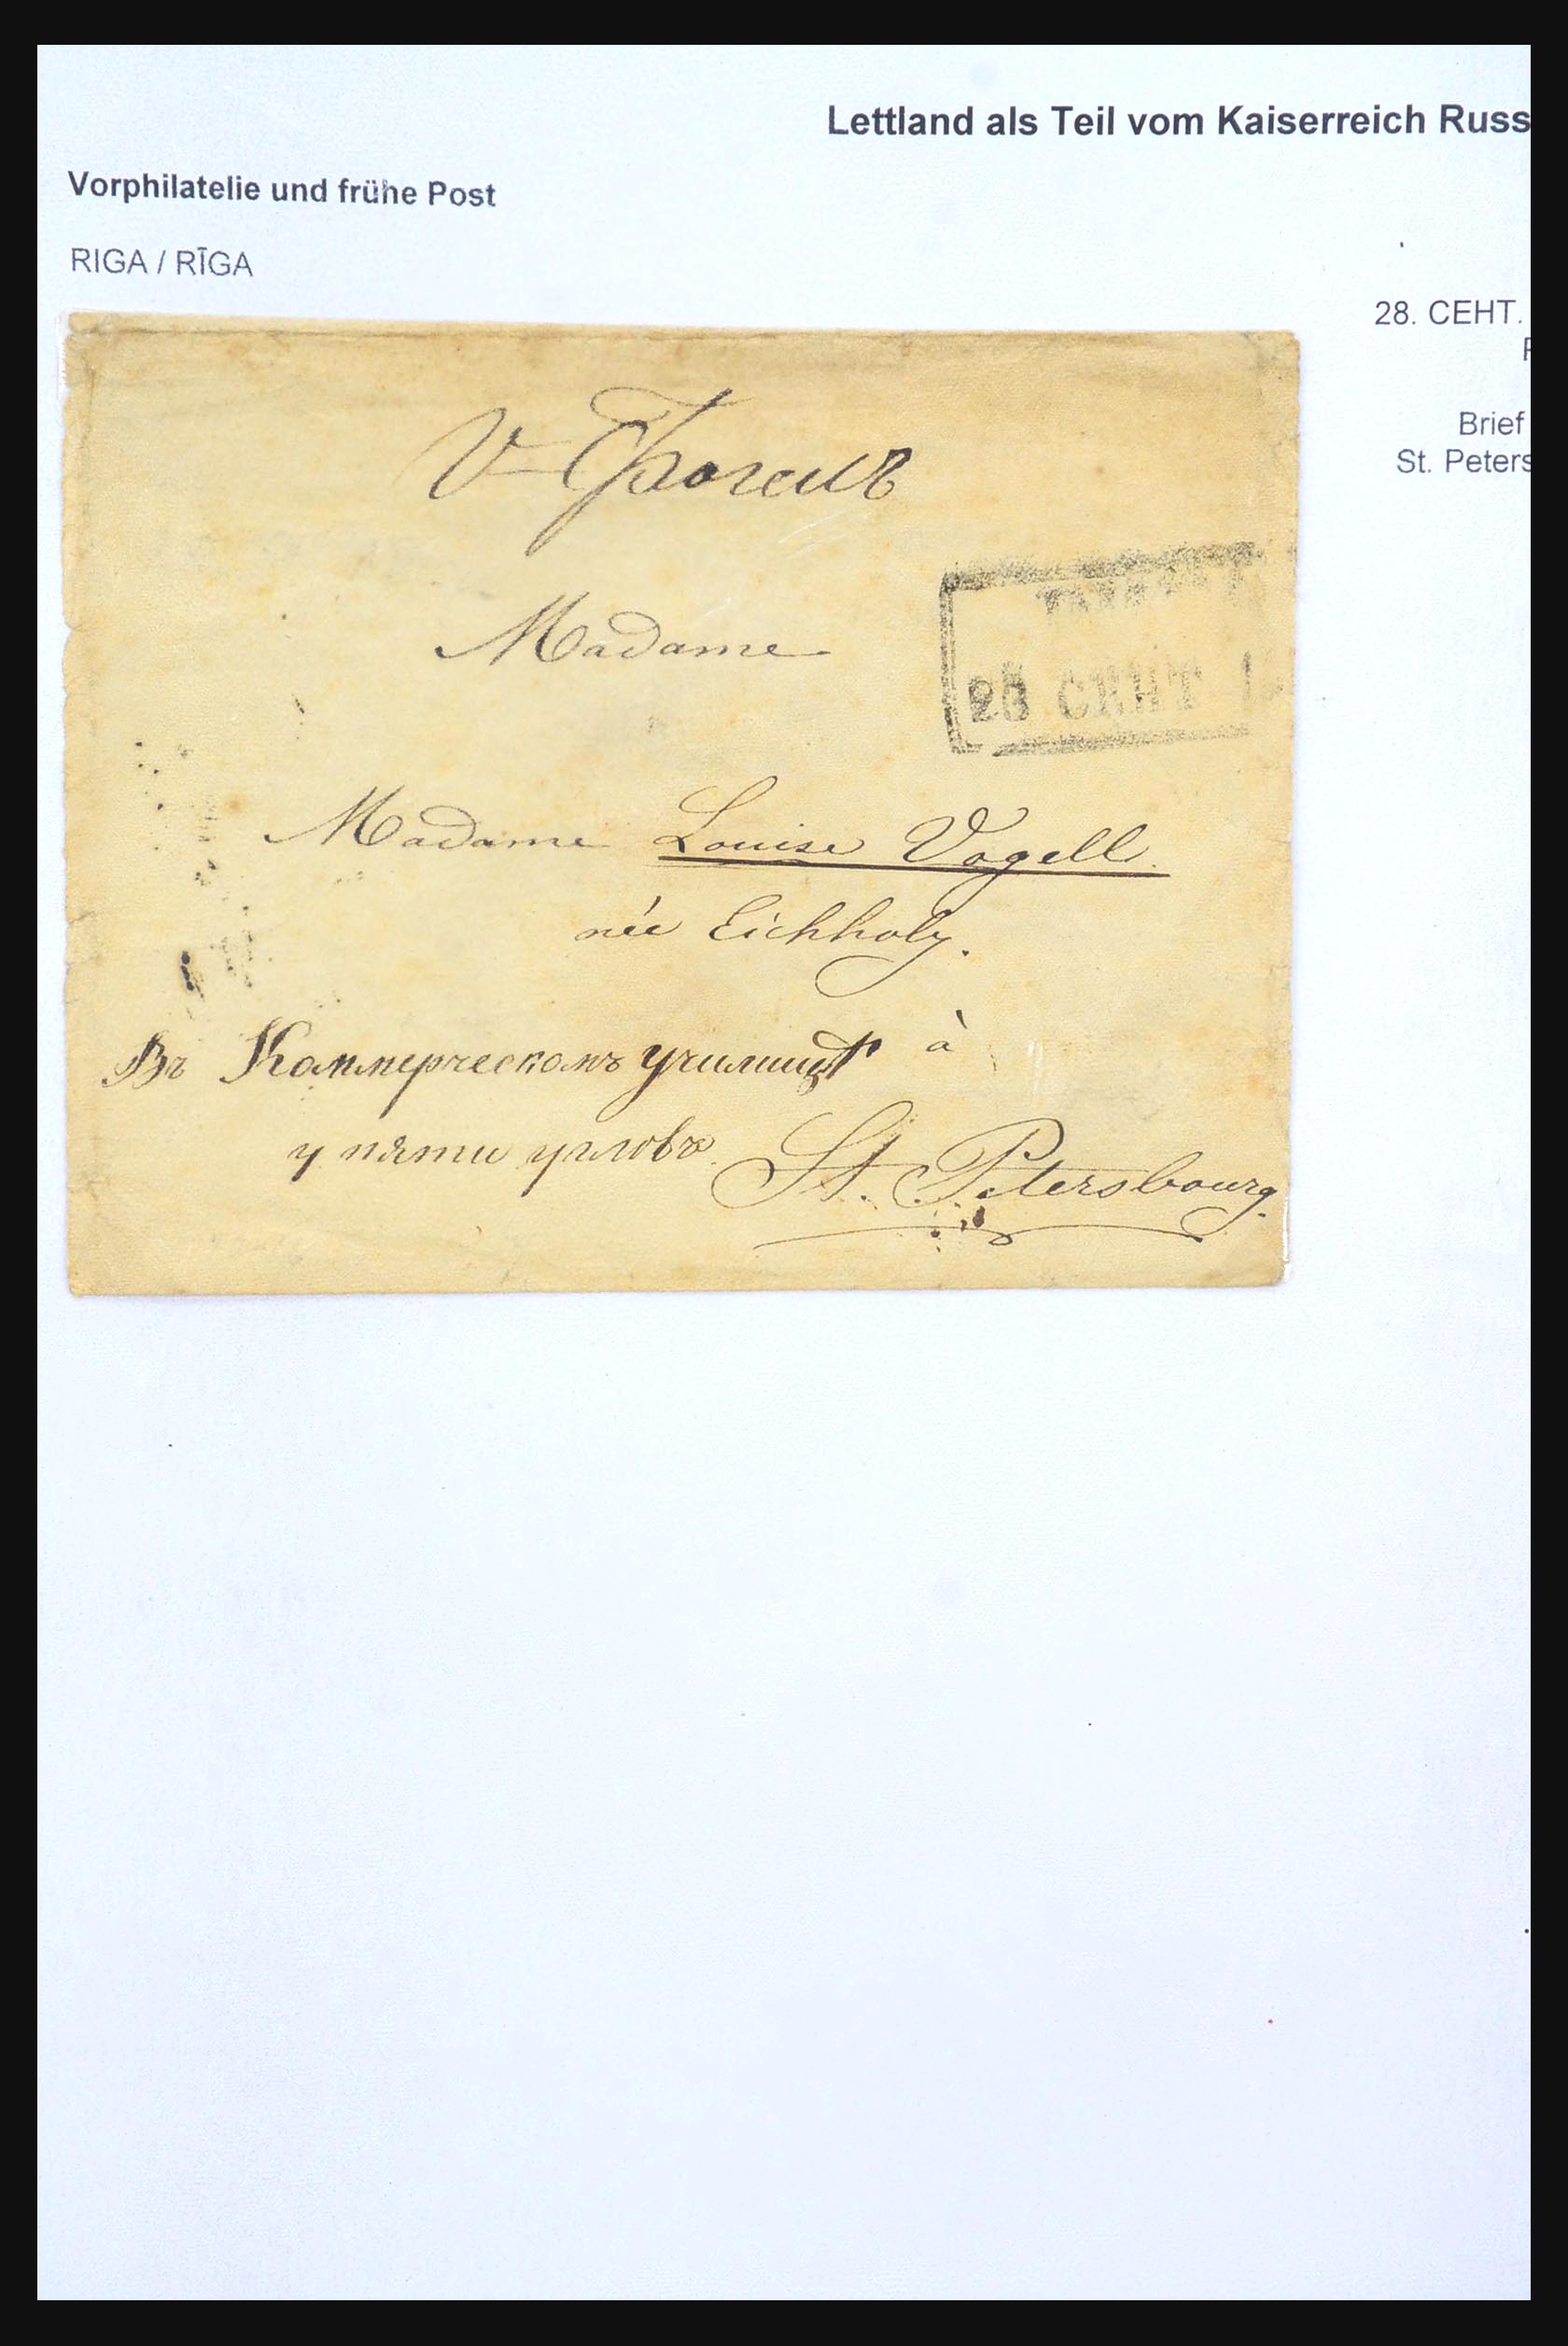 Lettland als Teil vom Kaiserreich Russ
Vorphilatelie und frühe Post
RIGA / RĪGA
28. CEHT.
Brief
St. Peters
Madame
28 СЕНТ
Madame Louise Vogell.
née Eichholz.
Въ Коммерческомъ училищѣ à
у пяти угловъ
St. Petersbourg.